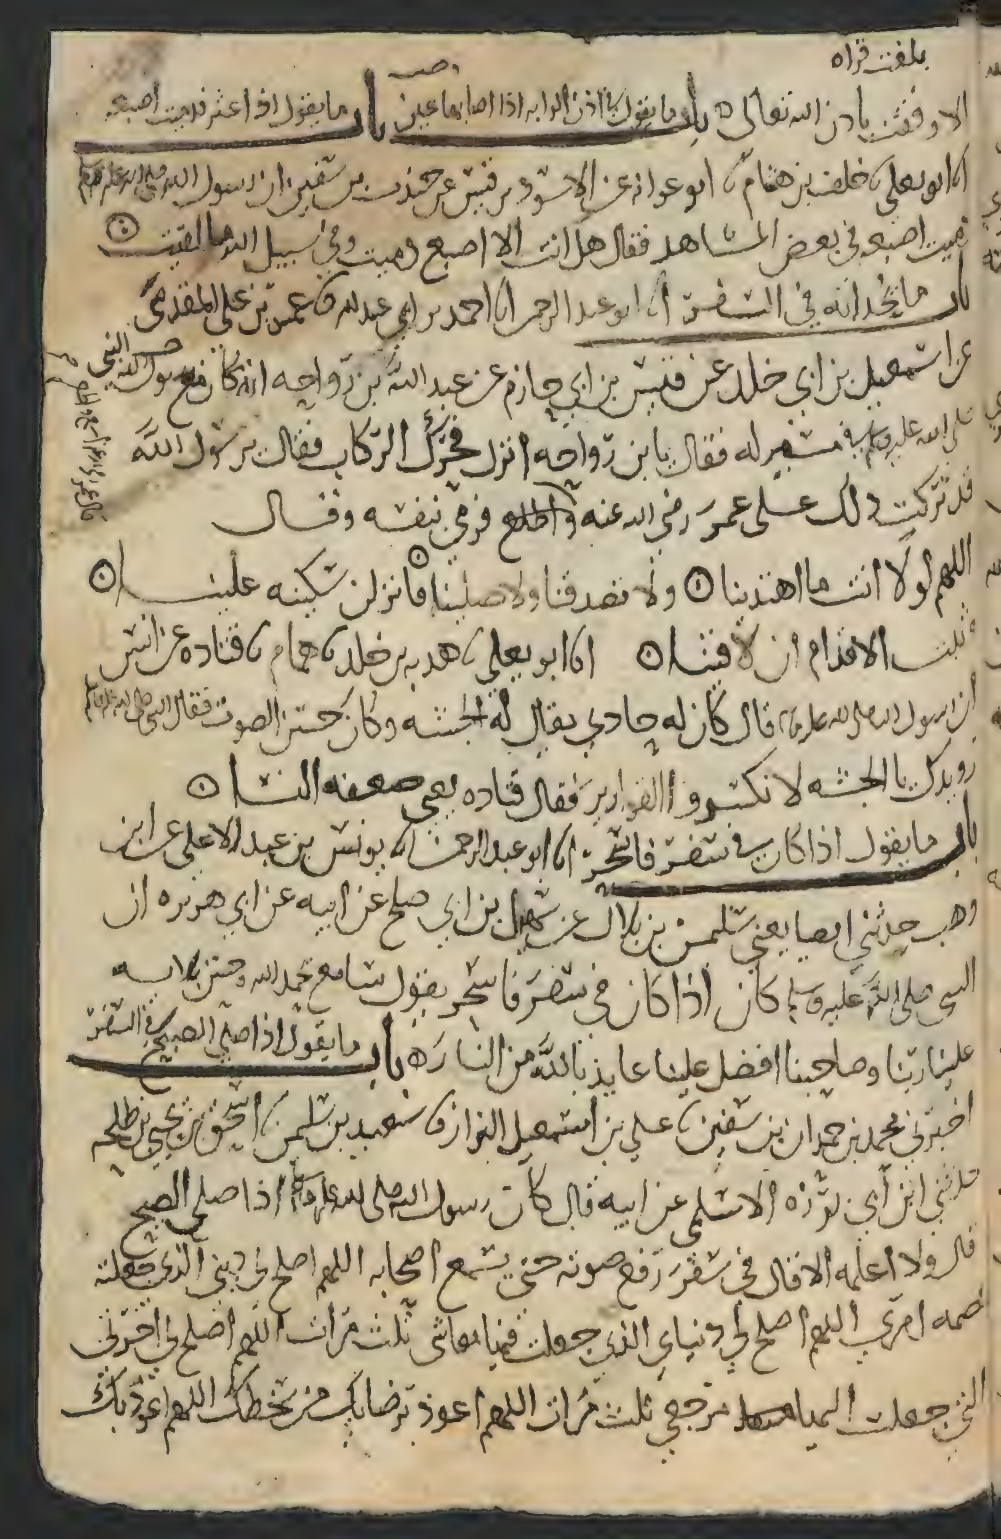 بلغت قراه
الا وقفت باذن الله تعالى ه باب ما يقول اذا اصابها عين باب ما يقول اذا عثر فدميت اصبعه
انا ابو يعلى نا خلف بن هشام نا ابو عوانه عن الاسود بن قيس عن جندب بن سفين ان رسول الله صلى الله عليه وسلم
دميت اصبعه في بعض المشاهد فقال هل انت الا اصبع دميت وفي سبيل الله ما لقيت
باب ما يحدا به في السفر انا ابو عبد الرحمن انا احمد بن ابي عبيد الله نا عمر بن علي المقدمي
عن اسمعيل بن ابي خلد عن قيس بن ابي حازم عن عبد الله بن رواحه انه كان مع رسول الله
صلى الله عليه وسلم في مسير له فقال يا بن رواحه انزل فحرك الركاب فقال يرسول الله
قد تركت ذلك على عمر رضي الله عنه فرمى بنفسه وقال
اللهم لولا انت ما اهتدينا ولا تصدقنا ولا صلينا فانزلن سكينه علينا
وثبت الاقدام ان لاقينا انا ابو يعلى نا هدبه بن خلد نا همام نا قتاده عن انس
ان رسول الله صلى الله عليه وسلم قال كان له حادي يقال له انجشه وكان حسن الصوت فقال النبي صلى الله عليه وسلم
رويدك يا انجشه لا تكسر القوارير فقال قتاده يعني ضعفه النسا
باب ما يقول اذا كان في سفر فاسحر انا ابو عبد الرحمن انا يونس بن عبد الاعلى عن ابن
وهب حدثني ايضا يعني سليمن بن بلال عن سهيل بن ابي صلح عن ابيه عن ابي هريره ان
النبي صلى الله عليه وسلم كان اذا كان في سفر فاسحر يقول سامع بحمد الله وحسن بلائه
علينا ربنا وصاحبنا افضل علينا عايذ بالله من النار ه باب ما يقول اذا صلى الصبح في السفر
اخبرني محمد بن حمدان بن سفين نا علي بن اسمعيل البزاز نا سعيد بن سليمن نا اسحق بن يحيى بن طلحه
حدثني ابن ابي برزه الاسلمي عن ابيه قال كان رسول الله صلى الله عليه وسلم اذا صلى الصبح
قال ولا اعلمه الا قال في سفر رفع صوته حتى يسمع اصحابه اللهم اصلح لي ديني الذي جعلته
عصمه امري اللهم اصلح لي دنياي الذي جعلت فيها معاشي ثلث مرات اللهم اصلح لي اخرتي
التي جعلت اليها مرجعي ثلث مرات اللهم اعوذ برضاك من سخطك اللهم اعوذ بك